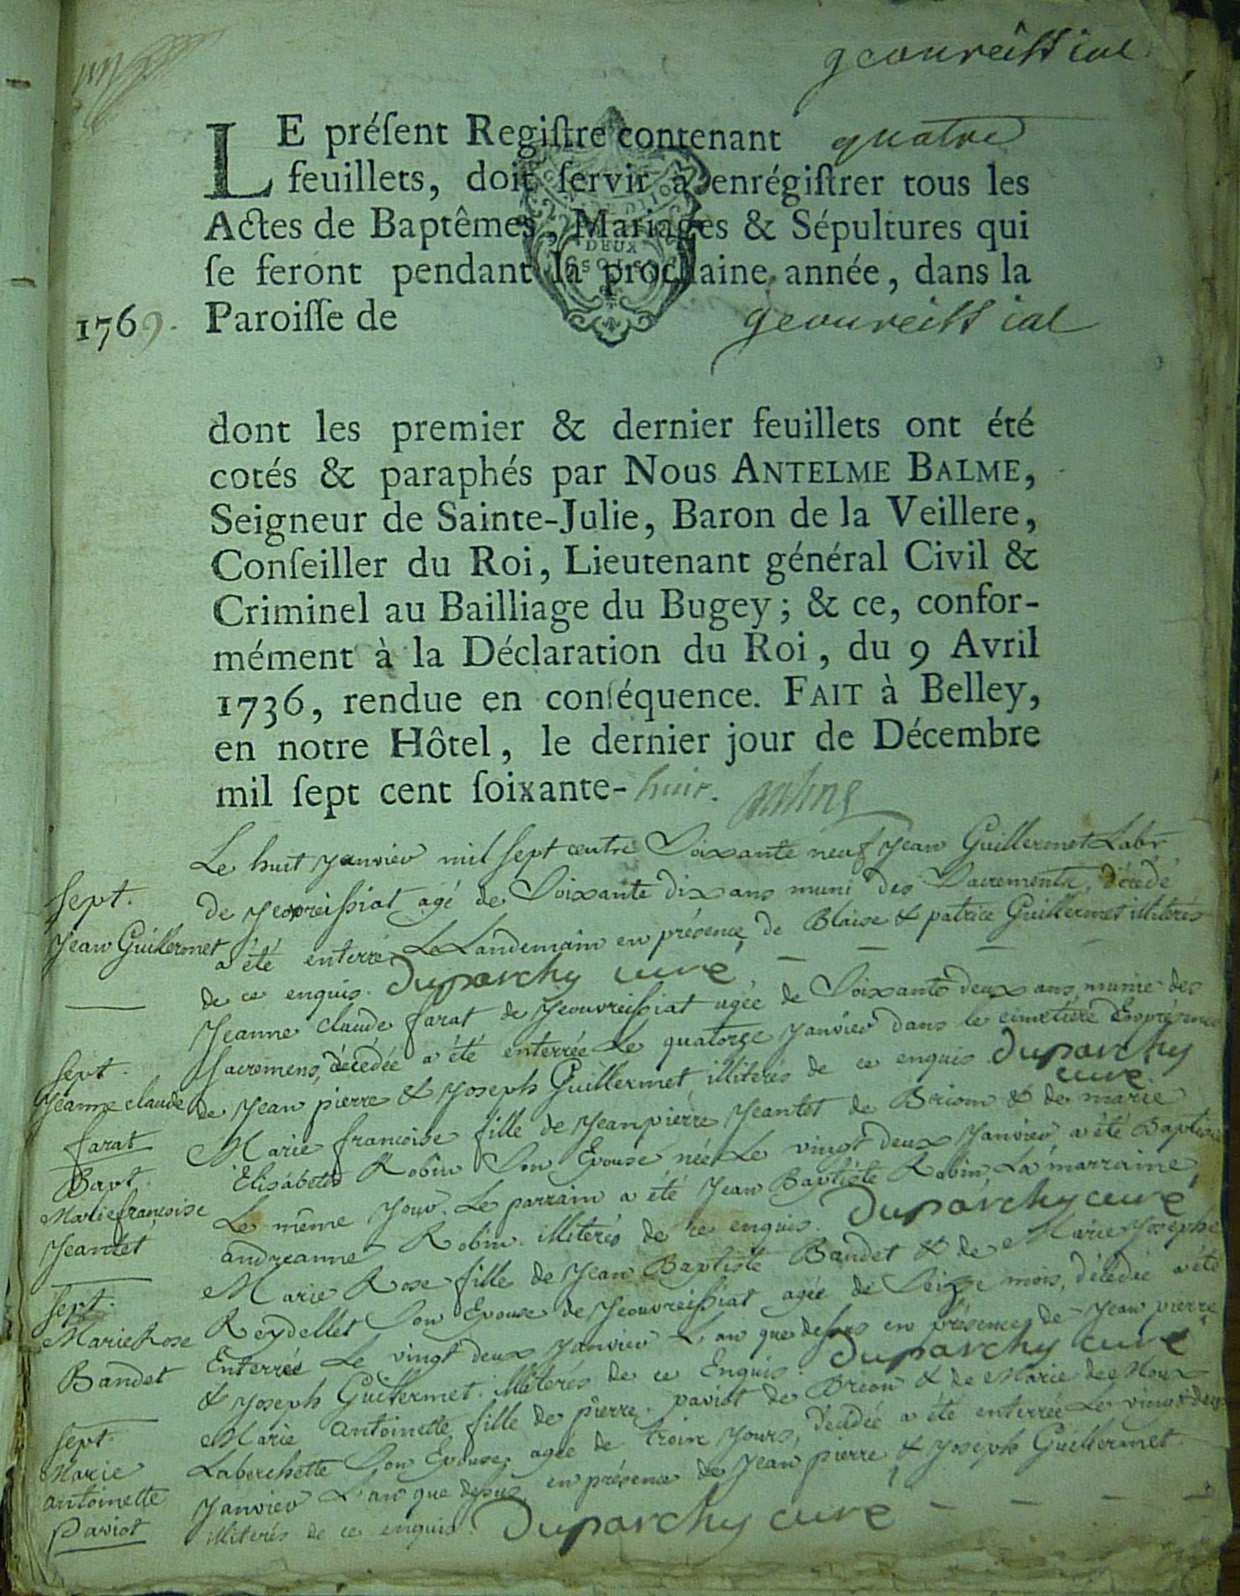 geoureissiat
LE préſent Regiſtre contenant quatre
feuillets, doit ſervir à enrégiſtrer tous les
Actes de Baptêmes, Mariages & Sépultures qui
ſe feront pendant la prochaine année, dans la
1769. Paroiſſe de geoureissiat
DEUX
SOLS
dont les premier & dernier feuillets ont été
cotés & paraphés par Nous ANTELME BALME,
Seigneur de Sainte-Julie, Baron de la Veillere,
Conſeiller du Roi, Lieutenant général Civil &
Criminel au Bailliage du Bugey; & ce, confor-
mément à la Déclaration du Roi, du 9 Avril
1736, rendue en conſéquence. FAIT à Belley,
en notre Hôtel, le dernier jour de Décembre
mil ſept cent ſoixante-huit.
Sept.
Jean Guillermet
Le huit Janvier mil sept cent Soixante neuf Jean Guillermet Labr
de Jeoureissiat agé de Soixante dix ans muni des Sacrements, décédé
a été enterré Le Landemain en présence de Blaise & patrice Guillermet illiterés
de ce enquis. Duparchy curé
Sept.
Jeanne claude
farat
Jeanne claude farat de Jeouvreissiat agée de Soixante deux ans munie des
sacremens, décédée a été enterrée Le quatorze Janvier dans le cimetiére En présence
de Jean pierre & Joseph Guillermet illiterés de ce enquis Duparchy
curé
Bapt.
Marie francoise
Jeantet
Marie francoise fille de Jean pierre Jeantet de Briom & de marie
Elisabeth Robin Son Epouse née Le vingt deux Janvier a été Baptisée
Le même Jour. Le parrain a été Jean Baptiste Robin La marraine
andreanne Robin. illiterés de ce enquis. Duparchy curé
Sept.
Marie Rose
Baudet
Marie Rose fille de Jean Baptiste Baudet & de Marie Josephe
Reydellet Son Epouse de Jeouvreissiat agée de Seize mois, décédée a été
Enterrée Le vingt deux Janvier L'an que dessus en présence de Jean pierre
& Joseph Guillermet. illiterés de ce Enquis. Duparchy curé
Sept.
Marie
antoinette
Paviot
Marie antoinette fille de pierre paviot de Briom & de Marie
Laberchette Son Epouse, agée de trois Jours, décédée a été enterrée Le vingt deux
Janvier L'an que dessus en présence de Jean pierre & Joseph Guillermet
illiterés de ce enquis. Duparchy curé